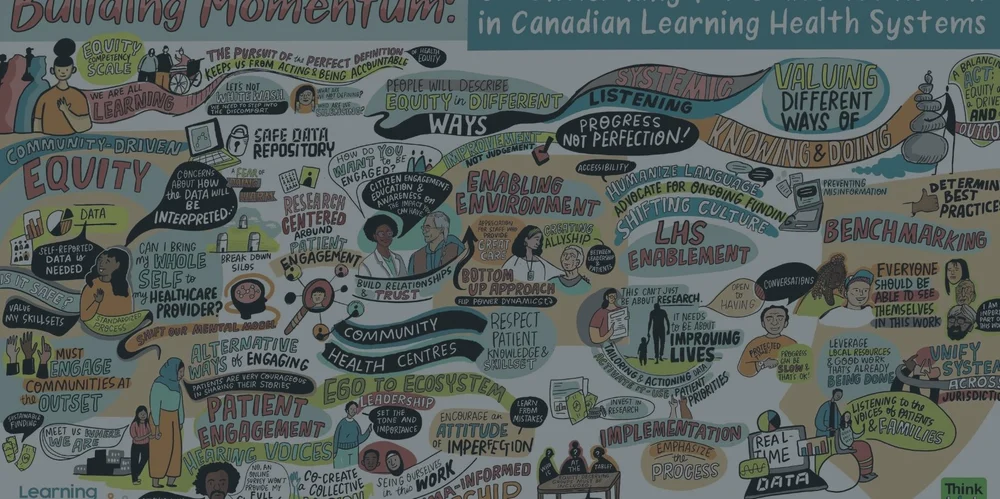 Building Momentum:
in Canadian Learning Health Systems
EQUITY
COMPETENCY
SCALE
WE ARE ALL
LEARNING
THE PURSUIT of the PERFECT DEFINITION
of HEALTH
EQUITY
KEEPS US FROM ACTING & BEING ACCOUNTABLE
LET'S NOT
WHITEWASH
WE NEED TO STEP INTO
the DISCOMFORT
PEOPLE WILL DESCRIBE
EQUITY in DIFFERENT
WAYS
SYSTEMIC
LISTENING
PROGRESS
NOT PERFECTION!
VALUING
DIFFERENT
WAYS OF
KNOWING & DOING
A BALANCING
ACT:
EQUITY
a DRIVER
AND
OUTCO
COMMUNITY-DRIVEN
EQUITY
SAFE DATA
REPOSITORY
CONCERNS
ABOUT HOW
the DATA WILL
BE
INTERPRETED..
A FEAR of
DATA
SELF-REPORTED
DATA is
NEEDED
IS IT SAFE?
VALUE
MY SKILLSETS
STANDARDIZED
PROCESS
CAN I BRING
my WHOLE
SELF to
my HEALTHCARE
PROVIDER?
BREAK DOWN
SILOS
SHIFT OUR MENTAL MODEL
RESEARCH
CENTERED
AROUND
PATIENT
ENGAGEMENT
HOW DO YOU
WANT to BE
ENGAGED?
CITIZEN ENGAGEMENT
EDUCATION &
AWARENESS ON
THE IMPACT YOU
CAN HAVE
IMPROVEMENT
NOT JUDGEMENT
BUILD RELATIONSHIPS
& TRUST
ENABLING
ENVIRONMENT
APPRECIATION
FOR STAFF WHO
GREAT
CARE
CREATING
ALLYSHIP
LEADERSHIP
PATIENTS
BOTTOM
UP APPROACH
FLIP POWER DYNAMICS
ACCESSIBILITY
HUMANIZE LANGUAGE
ADVOCATE FOR ONGOING FUNDING
SHIFTING CULTURE
LHS
ENABLEMENT
PREVENTING
MISINFORMATION
DETERMIN
BEST
PRACTICE
BENCHMARKING
CONVERSATIONS
OPEN to
HAVING
EVERYONE
SHOULD BE
ABLE TO SEE
THEMSELVES
IN THIS WORK
I AM
IMPORTANT
PART OF
THIS CAN'T JUST
BE ABOUT RESEARCH,
IT NEEDS
to BE ABOUT
IMPROVING
LIVES
TAILORING & ACTIONING DATA
PATIENT
PRIORITIES
PROTECTED
PROGRESS
CAN BE
SLOW &
THAT'S OK!
LEVERAGE
LOCAL RESOURCES
& GOOD WORK
THAT'S ALREADY
BEING DONE
UNIFY
SYSTEM
ACROSS
JURISDICTIO
COMMUNITY
HEALTH CENTRES
RESPECT
PATIENT
KNOWLEDGE &
SKILLSET
MUST
ENGAGE
COMMUNITIES AT
the OUTSET
ALTERNATIVE
WAYS of ENGAGING
PATIENTS ARE VERY COURAGEOUS
IN SHARING THEIR STORIES
EGO TO ECOSYSTEM
PATIENT
ENGAGEMENT
HEARING VOICES
LEADERSHIP
SET THE
TONE AND
IMPORTANCE
ENCOURAGE an
ATTITUDE
of IMPERFECTION
LEARN
FROM
MISTAKES
INVEST in
RESEARCH
IMPLEMENTATION
EMPHASIZE
the
PROCESS
LISTENING to the
VOICES OF PATIENTS
& FAMILIES
SUSTAINABLE
FUNDING
MEET US WHERE
WE ARE
NO, AN
ONLINE
SURVEY WON'T
PROVIDE MY
FULL
CO-CREATE
a COLLECTIVE
SEEING OURSELVES
in this WORK
MA-INFORMED
SHIP
THE TABLE?
REAL-
TIME
DATA
Learning
Think